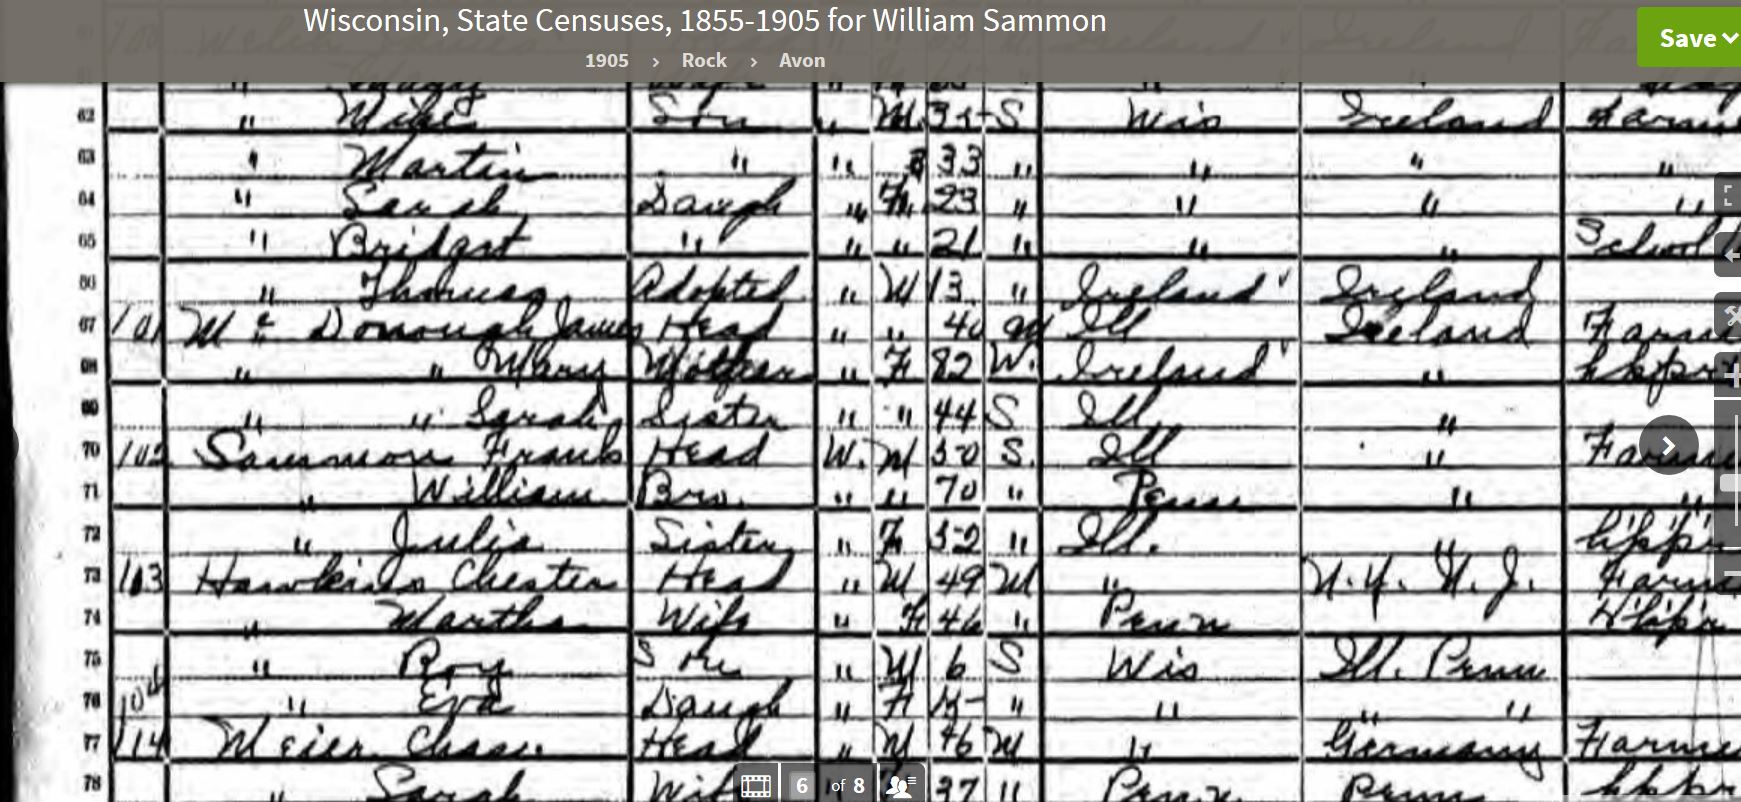 Wisconsin, State Censuses, 1855-1905 for William Sammon
Save
1905 › Rock › Avon
62 " Mike Son " M. 35 S Wis Ireland Farm
63 " Martin " " 33 " " " "
64 " Sarah Daugh " F. 23 " " " "
65 " Bridget " " " 21 " " " School
66 " Thomas Adopted " M 13 " Ireland Ireland
67 101 Mc Donough James Head " " 40 Ill Ireland Farm
68 " " Mary Mother " F 82 W. Ireland " hkpr
69 " " Sarah Sister " " 44 S Ill "
70 102 Sammon Frank Head W. M 50 S. Ill " Farm
71 " William Bro. " " 70 " Penn " "
72 " Julia Sister " F 52 " Ill. " hkpr
73 103 Hawkins Chester Head " M 49 M " N.Y. N.J. Farm
74 " Martha Wife " F 46 " Penn Hkpr
75 " Roy Son " M 6 S Wis Ill. Penn
76 104 " Eva Daugh " F " " " "
77 114 Meier Chas. Head " M 46 M " Germany Farme
78 " Sarah Wif 37 " Penn Penn hkpr
6 of 8